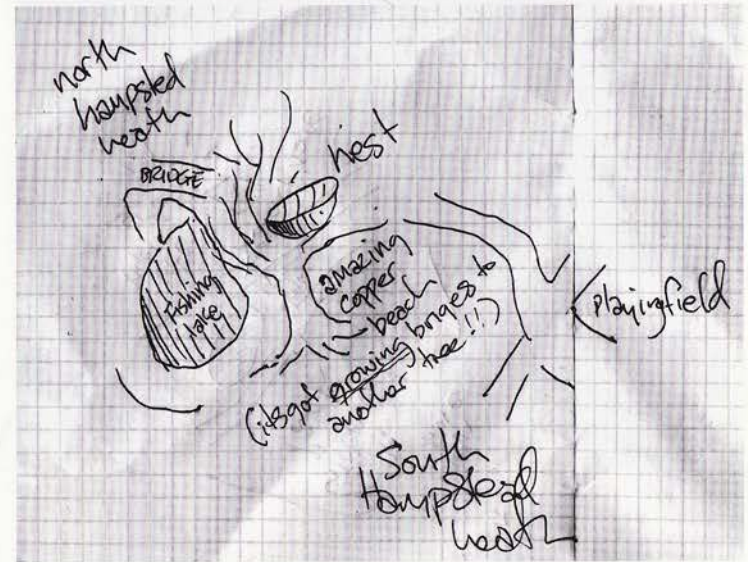 north
hampsted
heath
BRIDGE
nest
fishing
lake
amazing
copper
beach
(its got growing briges to
another tree!!)
playingfield
South
Hampstead
heath